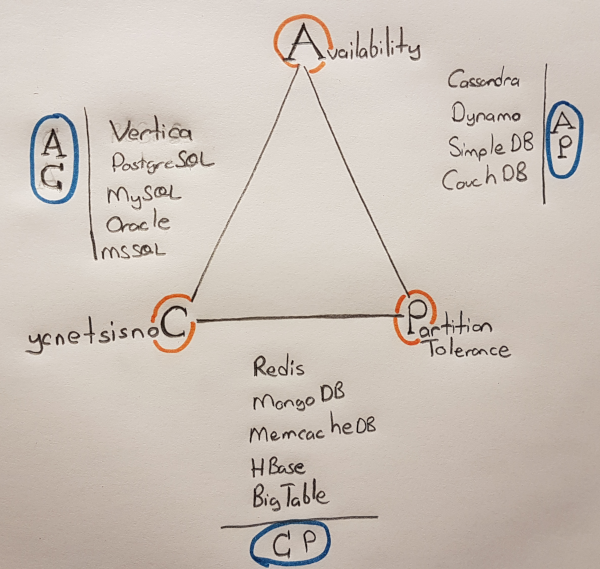 Availability
A
C
Vertica
PostgreSQL
MySQL
Oracle
MSSQL
Cassandra
Dynamo
Simple DB
Couch DB
A
P
ycnetsisnoC
Partition
Tolerance
Redis
Mongo DB
MemcacheDB
HBase
BigTable
C P